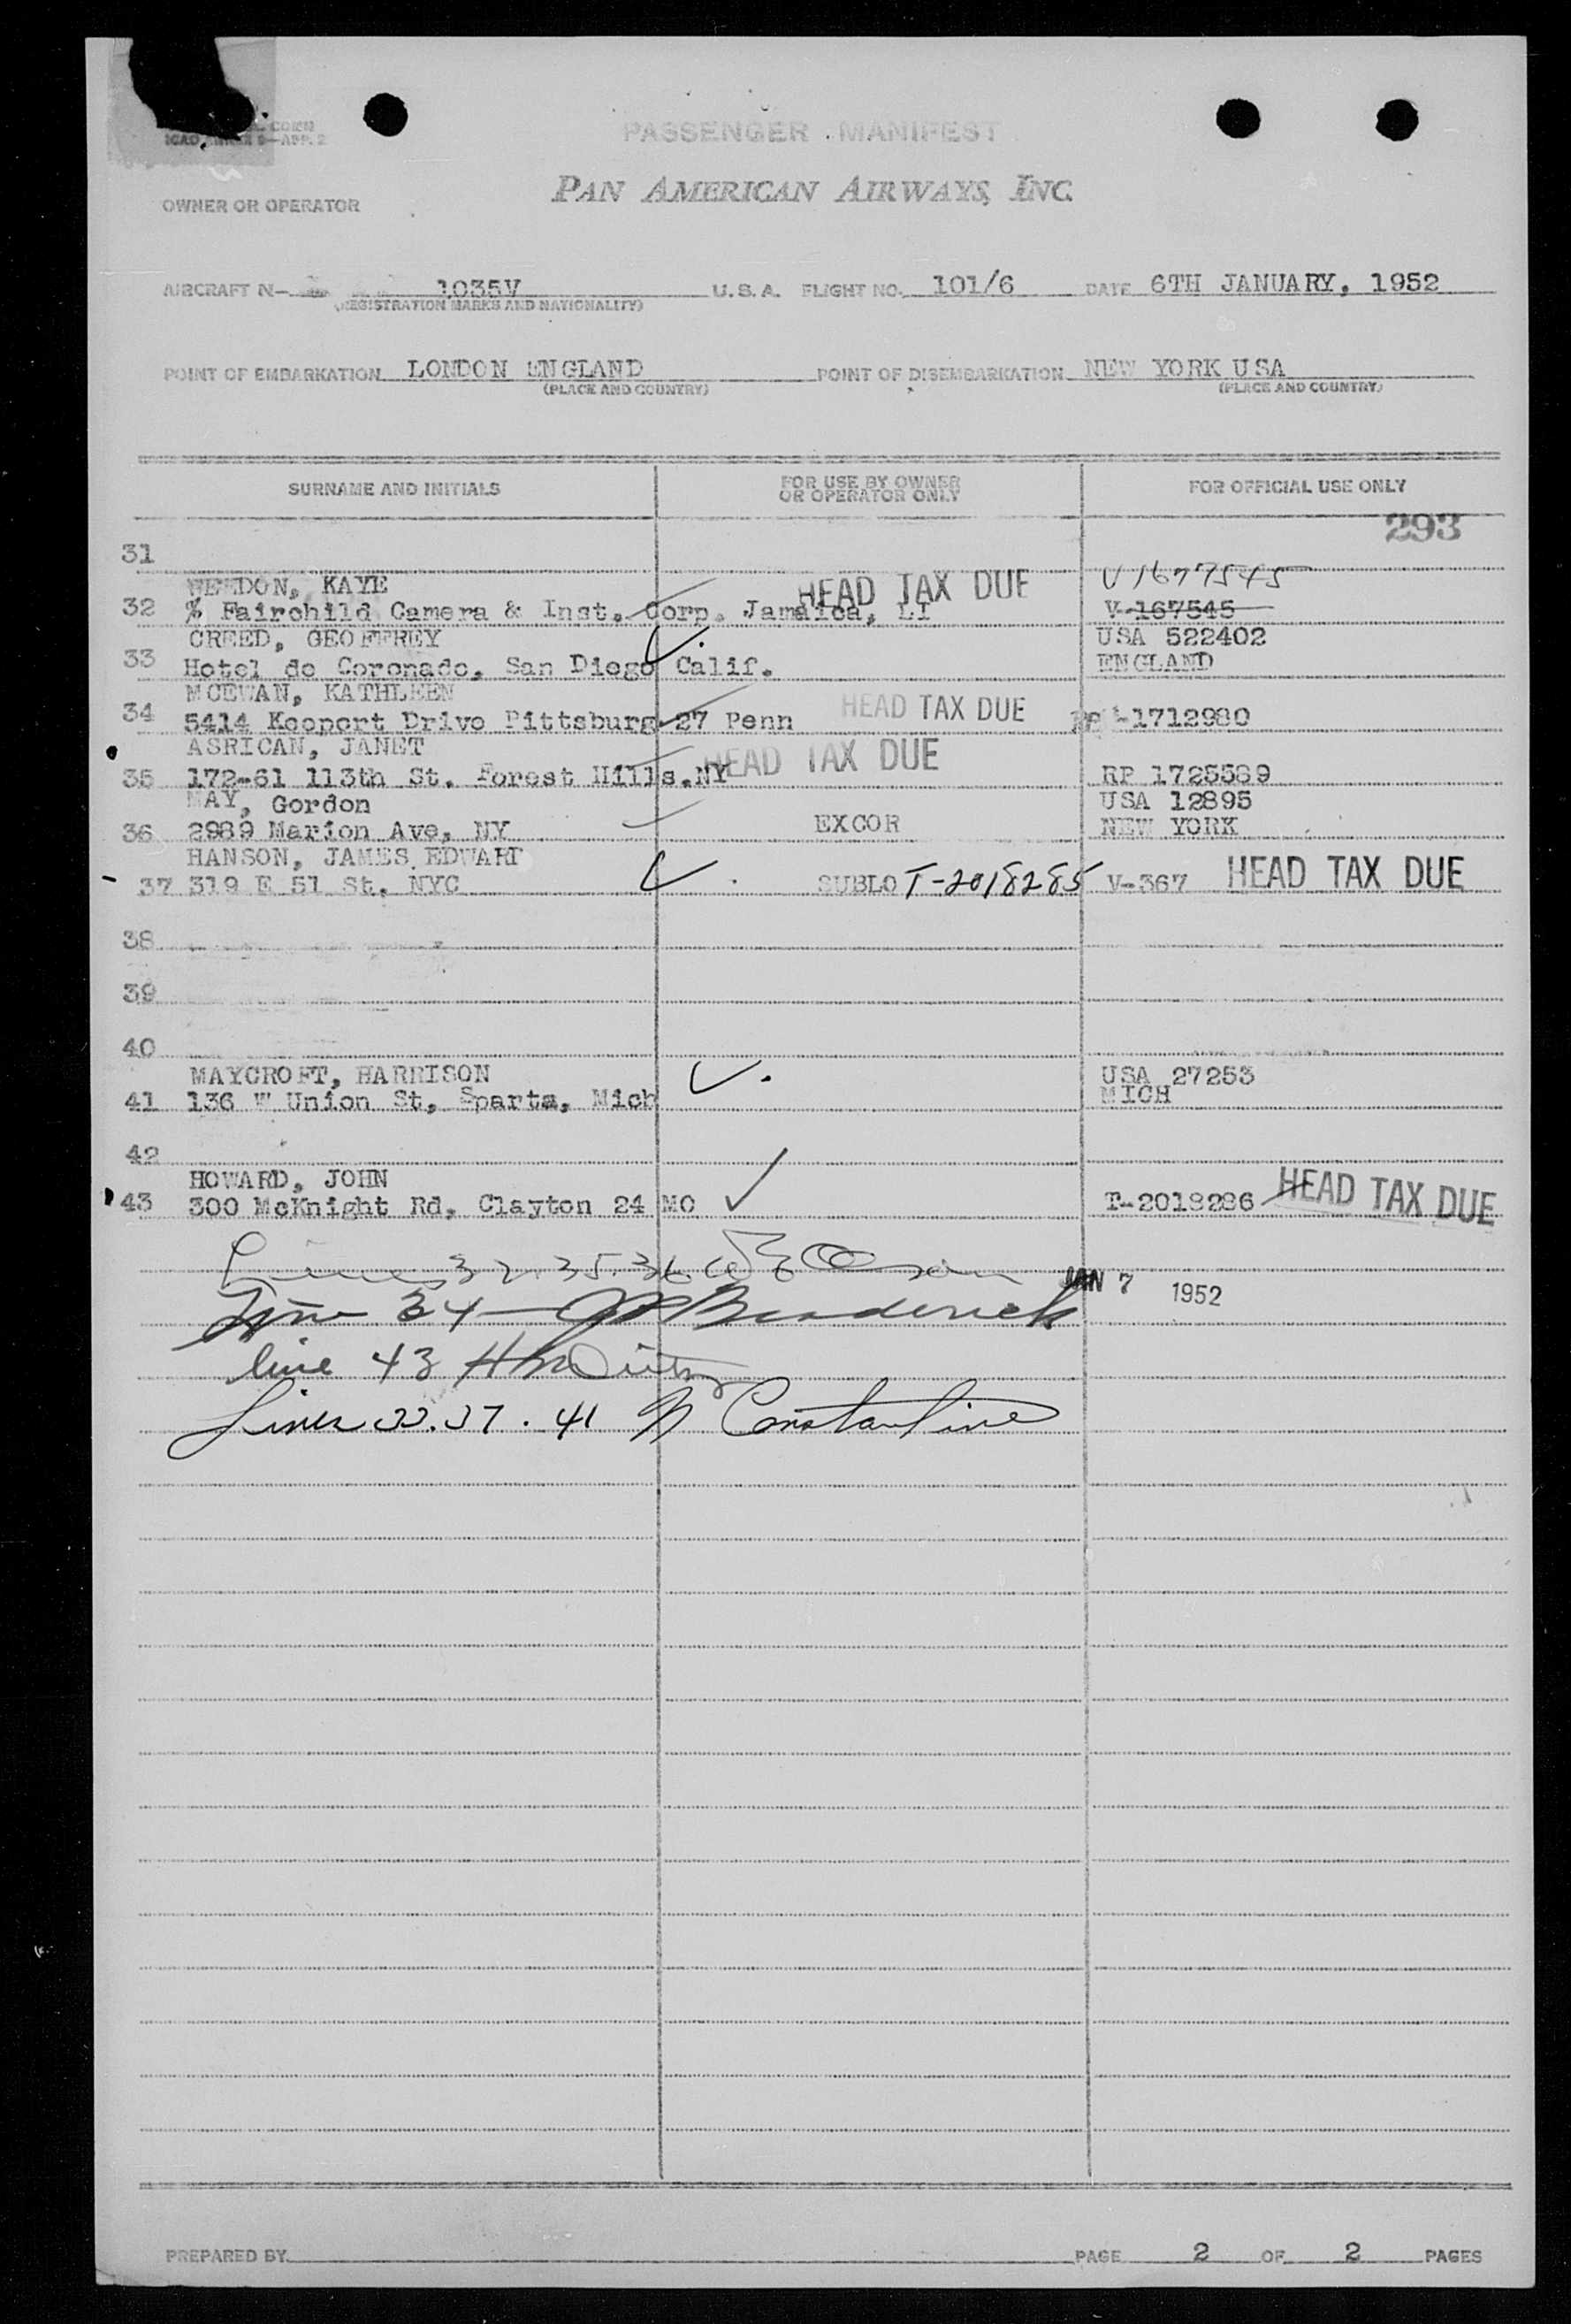 PASSENGER MANIFEST
PAN AMERICAN AIRWAYS, INC.
OWNER OR OPERATOR
AIRCRAFT N- 1035V U. S. A. FLIGHT NO. 101/6 DATE 6TH JANUARY, 1952
(REGISTRATION MARKS AND NATIONALITY)
POINT OF EMBARKATION LONDON ENGLAND POINT OF DISEMBARKATION NEW YORK USA
(PLACE AND COUNTRY) (PLACE AND COUNTRY)
SURNAME AND INITIALS FOR USE BY OWNER OR OPERATOR ONLY FOR OFFICIAL USE ONLY
293
31
KAYE HEAD TAX DUE V1677545
32 % Fairchild Camera & Inst. Corp. Jamaica, LI V-167545
CREED, GEOFFREY USA 522402
33 Hotel de Coronado, San Diego Calif. ENGLAND
MCEWAN, KATHLEEN
34 5414 Keeport Drive Pittsburg 27 Penn HEAD TAX DUE -1712980
ASRICAN, JANET HEAD TAX DUE
35 172-61 113th St. Forest Hills.NY RP 1725589
MAY, Gordon USA 12895
36 2989 Marion Ave, NY EXCOR NEW YORK
HANSON, JAMES EDWART
37 319 E 51 St. NYC SUBLO T-2018285 V-367 HEAD TAX DUE
38
39
40
MAYCROFT, HARRISON USA 27253
41 136 W Union St, Sparta, Mich MICH
42
HOWARD, JOHN
43 300 McKnight Rd, Clayton 24 MO T-2018286 HEAD TAX DUE
Lines 32.35.36
JAN 7 1952
Line 34 Broderick
line 43
Lines 33.37.41 N Constantine
PREPARED BY PAGE 2 OF 2 PAGES